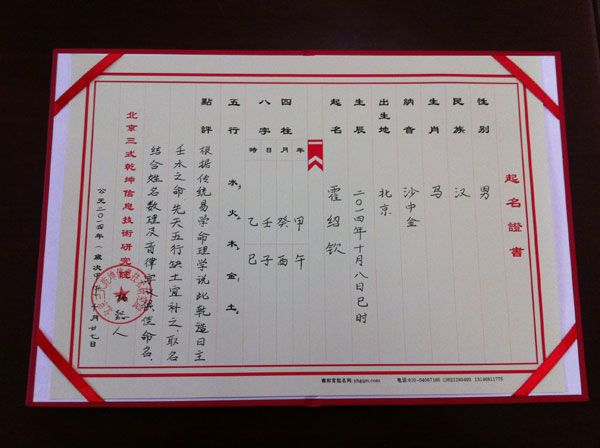 起名證書
性别 男
民族 汉
生肖 马
納音 沙中金
出生地 北京
生辰 二〇一四年十月八日巳时
起名 霍绍钦
年 甲午
四柱 月 癸酉
八字 日 壬子
時 乙巳
五行 水 火 木 金 土
點評 根据传统易学命理学说此乾造日主
壬水之命,先天五行缺土宜补之,取名
结合姓名数理及音律字义供使命名。
北京三式乾坤信息技術研究院
人
公元二〇一四年(歲次甲午)十月廿七日
电话:010-64097185